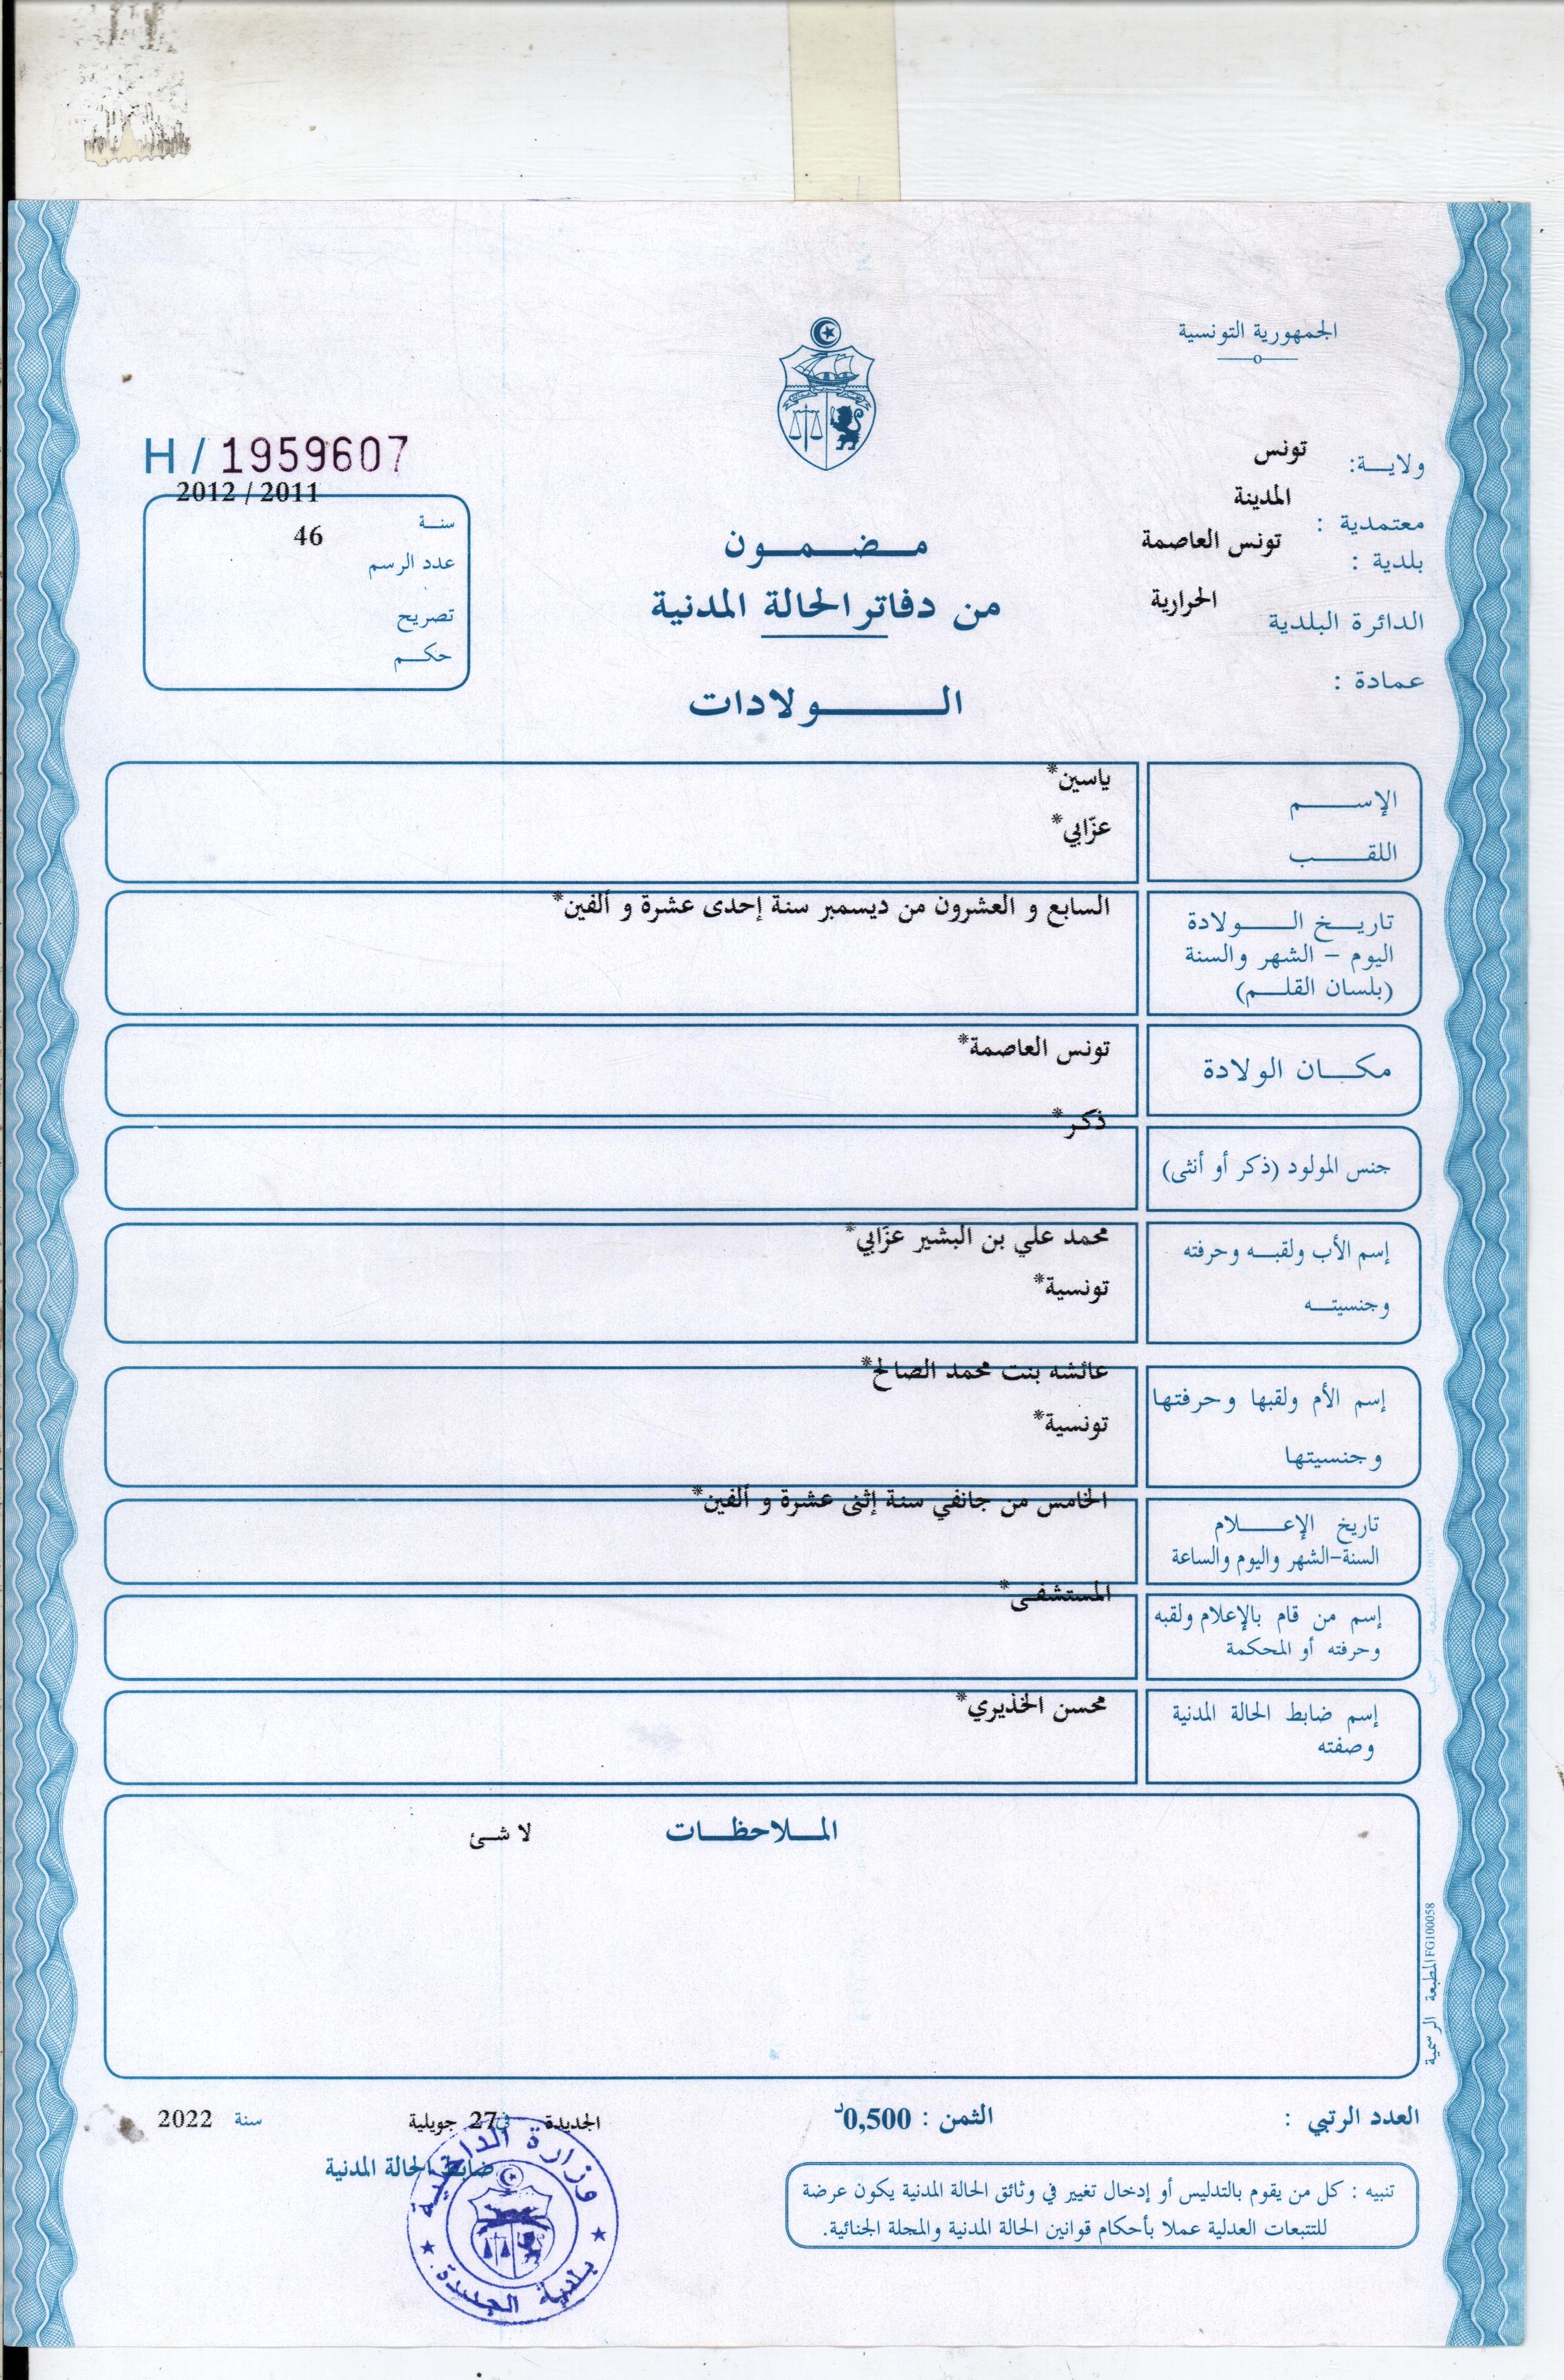 الجمهورية التونسية
ولايـــة: تونس
معتمدية : المدينة
بلدية : تونس العاصمة
الدائرة البلدية الحرارية
عمادة :
H / 1959607
2012 / 2011
سنـة
46
عدد الرسم
تصريح
حكـــم
مـــضـــمـــون
من دفاتر الحالة المدنية
الـــــولادات
الإســـــم ياسين*
اللقـــــب عزّابي*
تاريـــخ الــــولادة السابع و العشرون من ديسمبر سنة إحدى عشرة و ألفين*
اليوم - الشهر والسنة
(بلسان القلـــم)
مكـــان الولادة تونس العاصمة*
جنس المولود (ذكر أو أنثى) ذكر*
إسم الأب ولقبـــه وحرفته محمد علي بن البشير عزّابي*
وجنسيتـــه تونسية*
إسم الأم ولقبها وحرفتها عائشه بنت محمد الصالح*
وجنسيتها تونسية*
تاريخ الإعـــــلام الخامس من جانفي سنة إثنى عشرة و ألفين*
السنة-الشهر واليوم والساعة
إسم من قام بالإعلام ولقبه المستشفى*
وحرفته أو المحكمة
إسم ضابط الحالة المدنية محسن الخذيري*
وصفته
المـــلاحظـــات لا شئ
المطبعة الرسمية FG100058
العدد الرتبي :
الثمن : 0,500د
الجديدة في 27 جويلية سنة 2022
ضابط الحالة المدنية
تنبيه : كل من يقوم بالتدليس أو إدخال تغيير في وثائق الحالة المدنية يكون عرضة
للتتبعات العدلية عملا بأحكام قوانين الحالة المدنية والمجلة الجنائية.
وزارة الداخلية
بلدية الجديدة